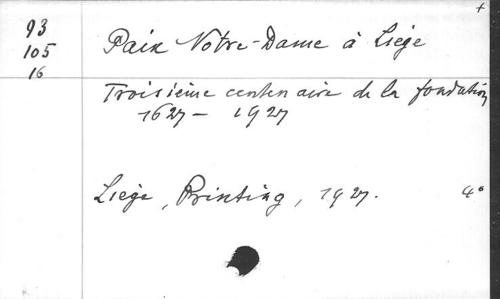 93
105
16
Paix Notre-Dame à Liège
Troisième centenaire de la fondation
1627 - 1927
Liège, Printing, 1927. 4°